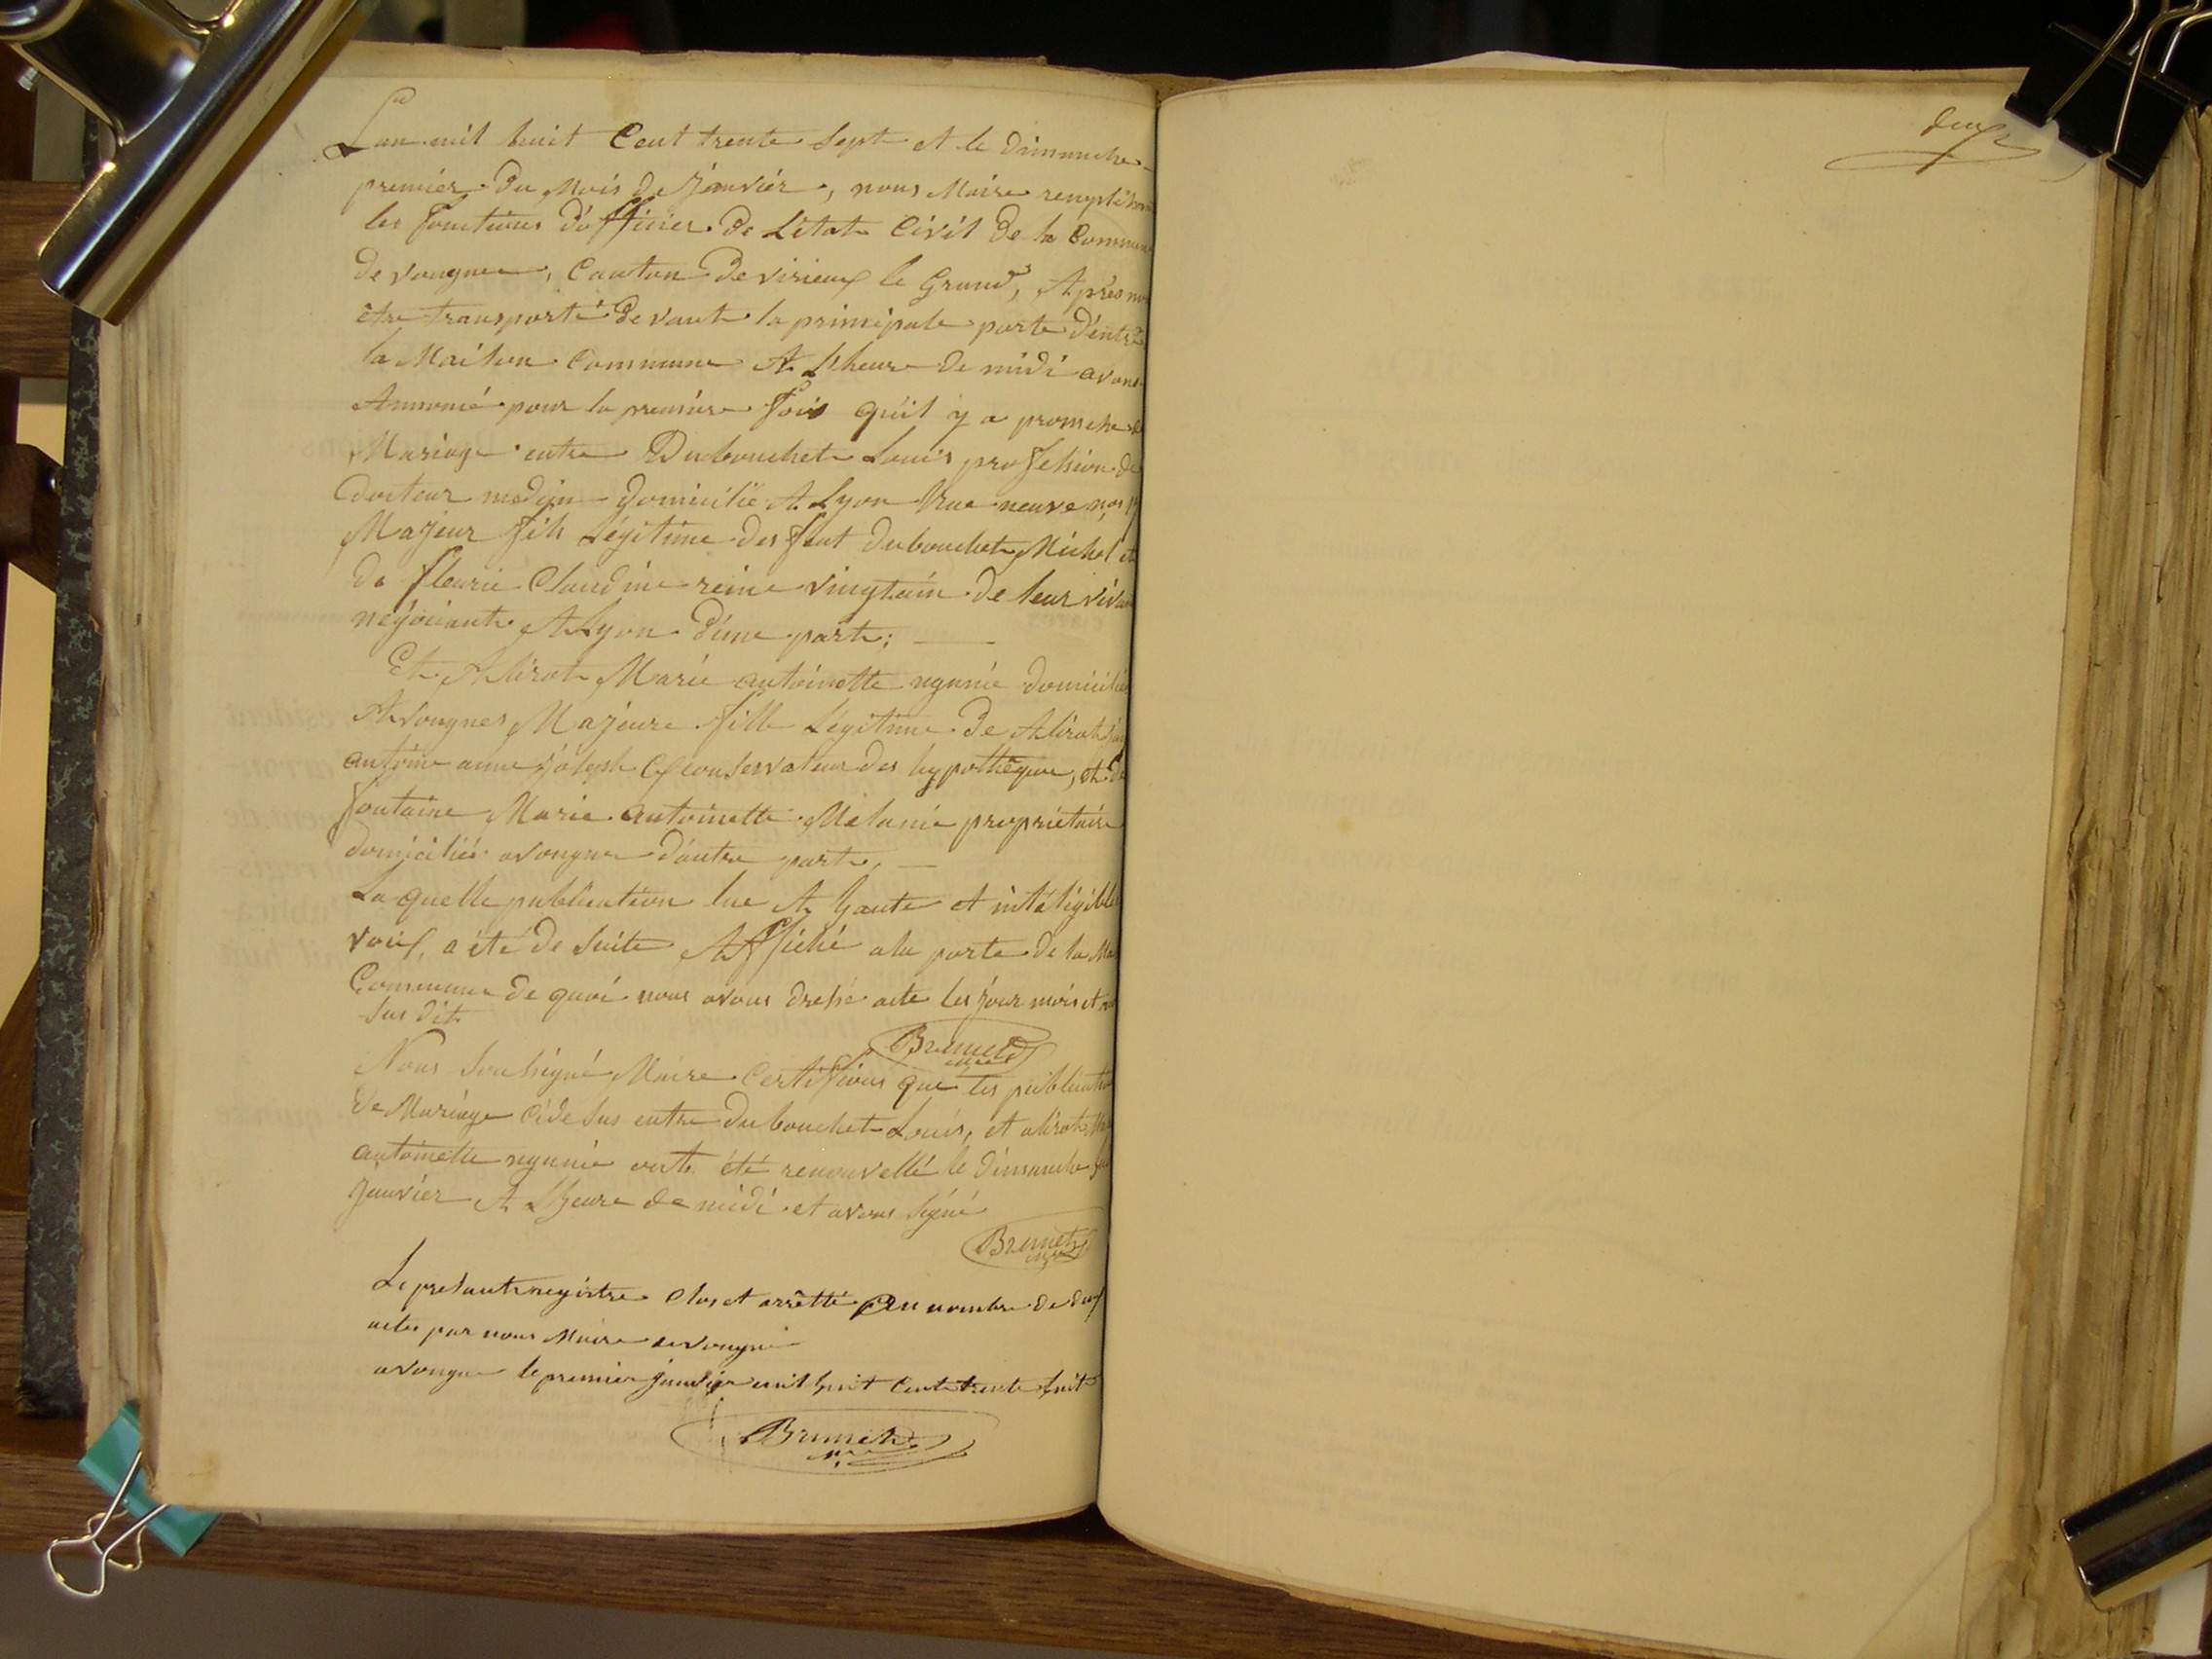 L'an mil huit Cent trente Sept et le dimanche
premier du Mois de Janvier, nous Maire remplissant
les fonctions d'officier de L'état Civil de la Commune
de vongnes, Canton de virieux le Grand, Après
être transporté devant la principale porte d'entré
la Maison Commune A L'heure de midi avons
Annoncé pour la premiere fois qu'il y a promesse de
Mariage entre Dubouchet Louis profession de
docteur medçin domicilié A Lyon Rue neuve
Majeur fils Légitime des feut dubouchet Michel et
de fleurie Claudine reine vingtain de leur vivant
négociants A Lyon d'une part;
Et Alirot Marie antoinette domicilié
A Vongnes Majeure fille Légitime de Alirot
antoine anne Joseph conservateur des hypothéques, et de
fontaine Marie antoinette Melanie propriétaire
domiciliés a vongnes d'autre part,
La quelle publication lue A haute et intéligible
voix, a été de suite Affiché a la porte de la
Commune de quoi nous avons dressé acte les jour mois et
Sus dit
Brunet
Nous Soussigné Maire Certifions que les publication
de Mariage ci desus entre dubouchet Louis, et alirot
antoinette ont été renouvellé le dimanche
Janvier A L'heure de midi et avons Signé
Brunet
Le present registre Clos et arretté au nombre de deux
actes par nous Maire de vongne
a vongne le premier janvier mil huit Cent trente huit
Brunet
deux